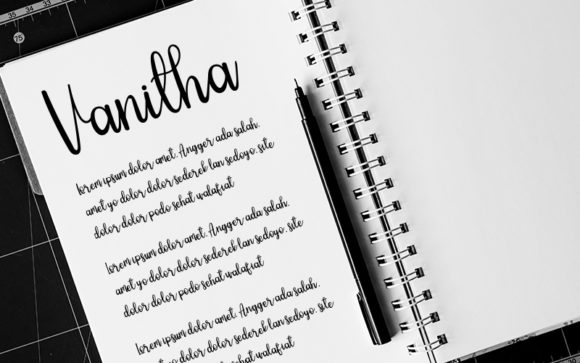 35
34
33
75
Vanitha
lorem ipsum dolor amet. Angger ada salah.
amet yo dolor dolor sederek lan sedoyo. site
dolor dolor podo sehat walafiat
lorem ipsum dolor amet. Angger ada salah.
amet yo dolor dolor sederek lan sedoyo. site
dolor dolor podo sehat walafiat
lorem ipsum dolor amet. Angger ada salah.
amet yo dolor dolor sederek lan sedoyo. site
dolor dolor podo sehat walafiat